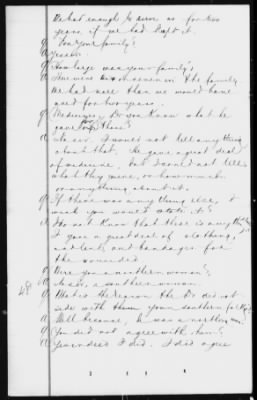 We had enough to serve us for two
years if we had kept it.
Q For your family?
A Yes sir.
Q How large was your family?
A There were seven in the family
We had more than we would have
used for two years.
Q Medicines, Do you know what he
gave for those?
A No sir. I would not tell anything
about that. He gave a great deal
of medicine, but I could not tell
what they were, or how much
or anything about it.
Q If there was any thing else, I
wish you would state it?
A I do not know that there is anything
I gave a great deal of clothing,
and lent, and bandages for
the wounded.
Q Were you a northern woman?
A No sir, a southern woman.
Q What is the reason the Dr did not
side with them your southern folks?
A Well because, he was a northern man.
Q You did not agree with him?
A Yes indeed I did. I did agree